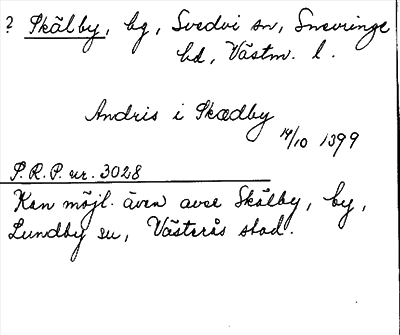 ? Skälby, by, Svedvi sn, Snevringe
hd, Västm. l.
Andris i Skædby
14/10 1399
P.R.P. nr. 3028
Kan möjl. även avse Skälby, by,
Lundby sn, Västerås stad.